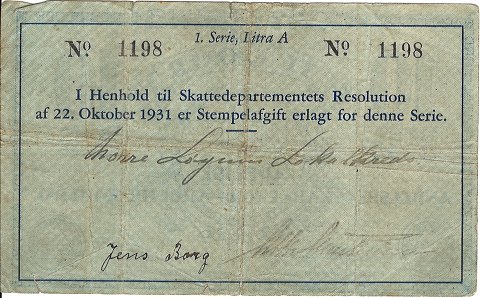 Nº 1198 1. Serie, Litra A Nº 1198
I Henhold til Skattedepartementets Resolution
af 22. Oktober 1931 er Stempelafgift erlagt for denne Serie.
Nørre Løgum Lokalkreds
Jens Borg